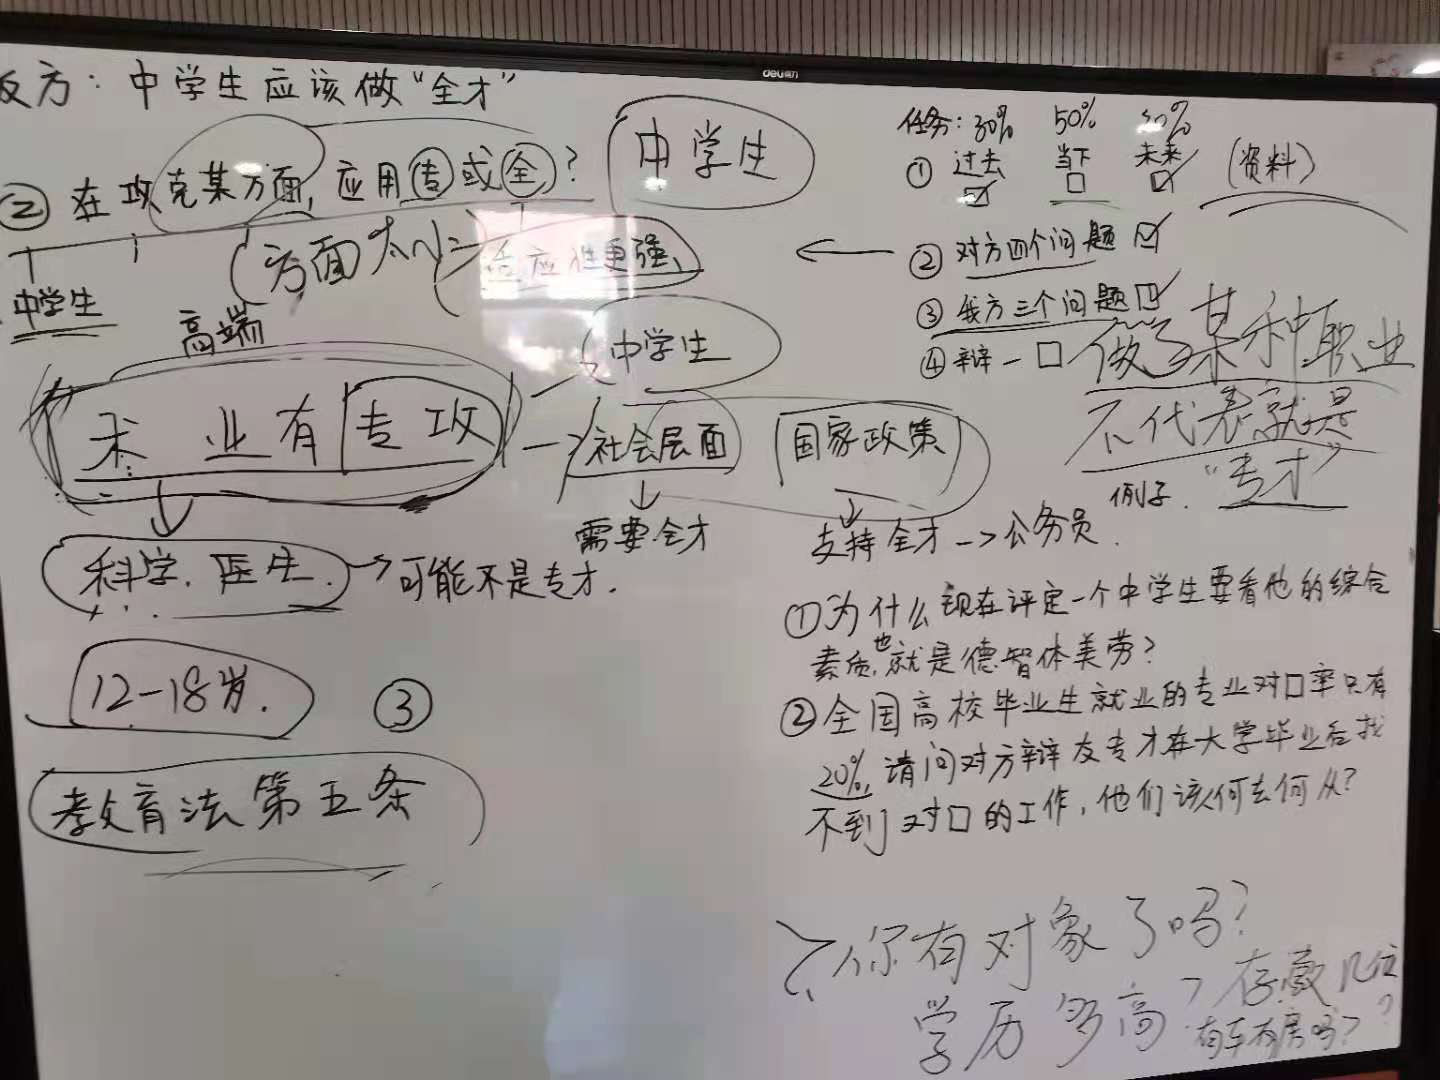 deli得力
反方：中学生应该做“全才”
②在攻克某方面，应用专或全？
中学生
(方面大小)
适应性更强、
中学生
高端
术业有专攻
中学生
社会层面
国家政策
需要全才
支持全才->公务员.
科学.医生.
可能不是专才.
12-18岁.
③
教育法第五条
任务：30% 50% 20%
①过去 当下 未来 (资料)
②对方四个问题
③我方三个问题
④辩一
做了某种职业
不代表就是
“专才”
例子.
①为什么现在评定一个中学生要看他的综合
素质,也就是德智体美劳？
②全国高校毕业生就业的专业对口率只有
20%,请问对方辩友专才在大学毕业后找
不到对口的工作,他们该何去何从？
你有对象了吗？
学历多高？存款几位？
有车有房吗？